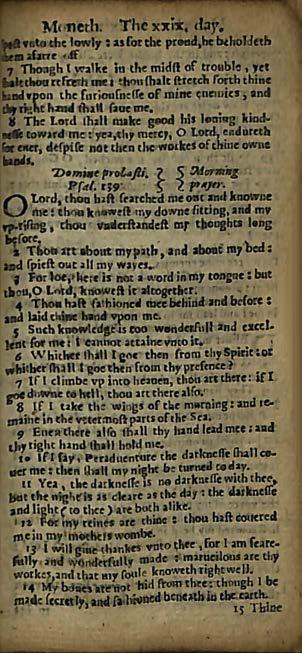 Moneth. The xxix, day.
spect vnto the lowly : as for the proud, he beholdeth
them afarre off
7 Though I walke in the midst of trouble , yet
shalt thou refresh me : thou shalt stretch forth thine
hand vpon the furiousnesse of mine enemies , and
thy right hand shall saue me.
8 The Lord shall make good his louing kind-
nesse toward me : yea, thy mercy, O Lord, endureth
for euer, despise not then the workes of thine owne
hands.
Domine probasti. Morning
Psal. 139. prayer.
O Lord, thou hast searched me out and knowne
me : thou knowest my downe sitting, and my
vp-rising, thou vnderstandest my thoughts long
before.
2 Thou art about my path, and about my bed :
and spiest out all my wayes.
3 For loe, there is not a word in my tongue : but
thou, O Lord, knowest it altogether.
4 Thou hast fashioned mee behind and before :
and laid thine hand vpon me.
5 Such knowledge is too wonderfull and excel-
lent for me : I cannot attaine vnto it.
6 Whither shall I goe then from thy Spirit : or
whither shall I goe then from thy presence ?
7 If I climbe vp into heauen, thou art there : if I
goe downe to hell, thou art there also.
8 If I take the wings of the morning : and re-
maine in the vttermost parts of the Sea.
9 Euen there also shall thy hand lead mee : and
thy right hand shall hold me.
10 If I say, Peraduenture the darknesse shall co-
uer me : then shall my night be turned to day.
11 Yea , the darknesse is no darknesse with thee,
but the night is as cleare as the day : the darknesse
and light ( to thee ) are both alike.
12 For my reines are thine : thou hast couered
me in my mothers wombe.
13 I will giue thankes vnto thee , for I am feare-
fully and wonderfully made : marueilous are thy
workes, and that my soule knoweth right well.
14 My bones are not hid from thee : though I be
made secretly, and fashioned beneath in the earth.
15 Thine